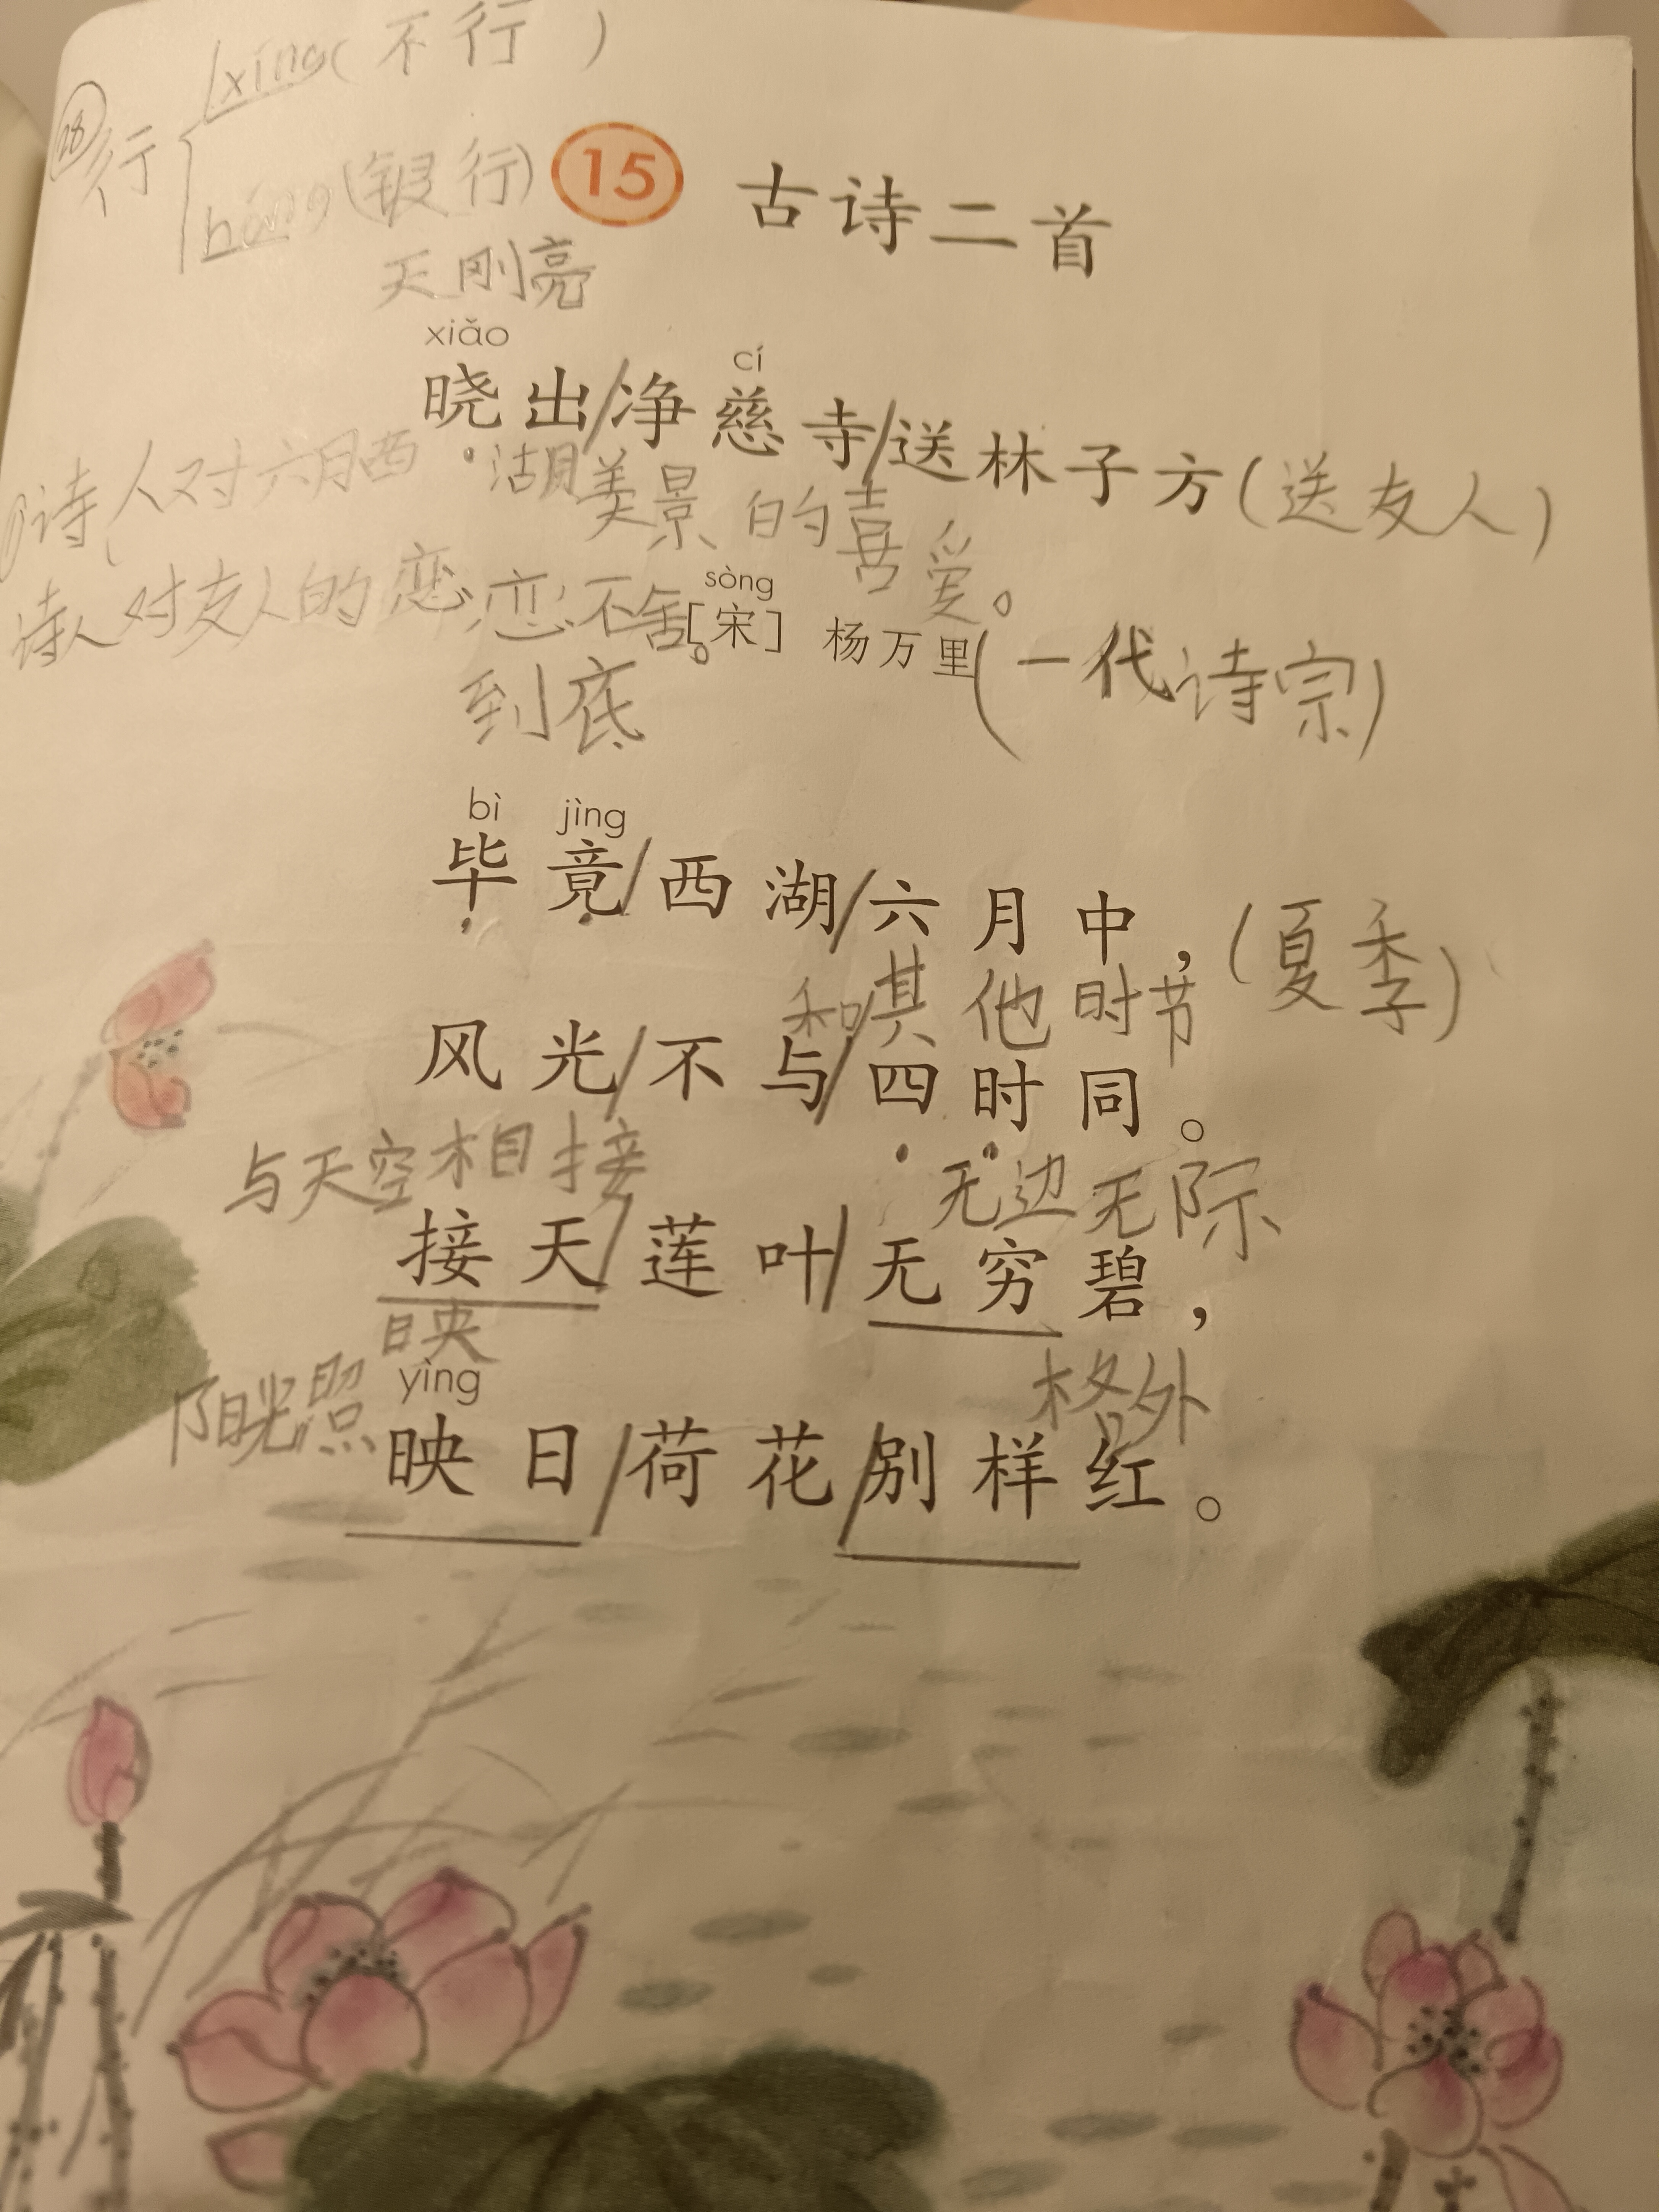 xíng(不行)
28 行
háng(银行) 15 古诗二首
天刚亮
xiǎo cí
晓出/净慈寺/送林子方(送友人)
诗人对六月西湖美景的喜爱。
诗人对友人的恋恋不舍。
sòng
[宋] 杨万里(一代诗宗)
到底
bì jìng
毕竟/西湖/六月中,(夏季)
和其他时节
风光/不与/四时同。
与天空相接 无边无际
接天/莲叶/无穷碧,
映 格外
阳光照 yìng
映日/荷花/别样红。